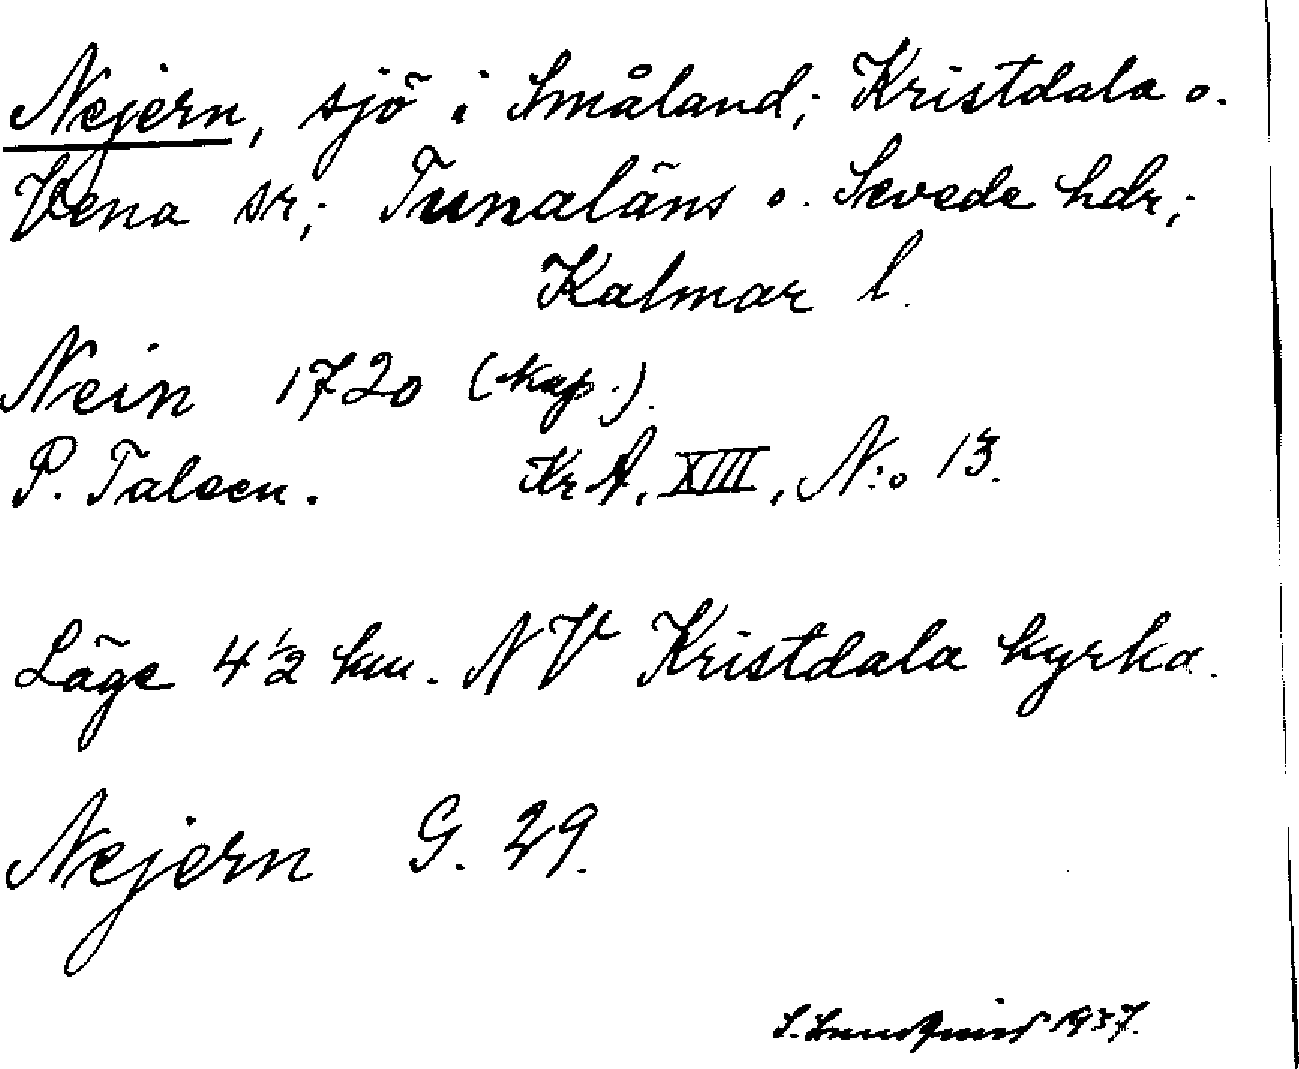 Nejern, sjö i Småland; Kristdala o.
Vena sr; Tunaläns o. Sevede hdr;
Kalmar l.
Nein 1720 (kop.).
P. Taleen. KrA, XIII, N:o 13.
Läge 4½ km. NV Kristdala kyrka.
Nejern G. 29.
S. Lundqvist 1937.